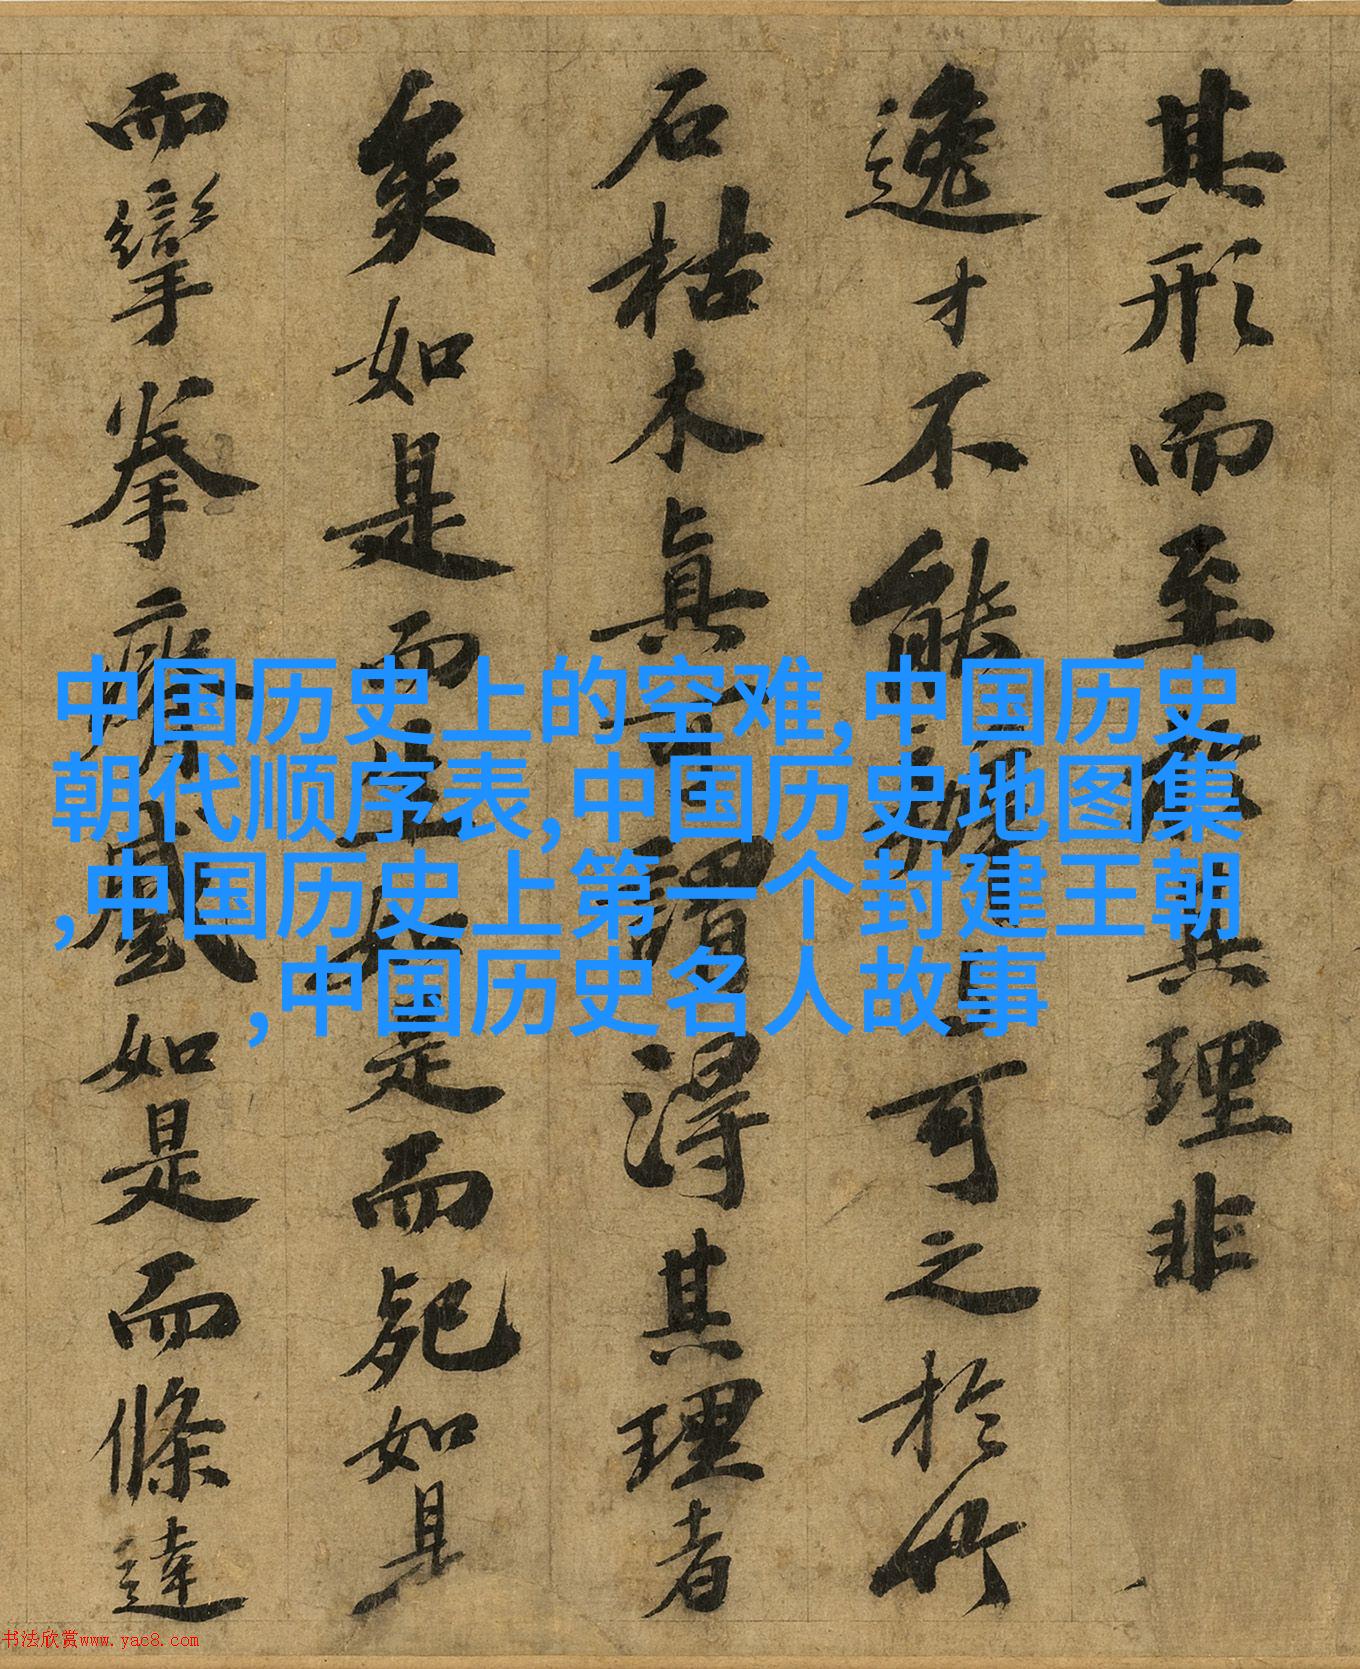 其形而至其理非
逸才不能可之於竹
石枯木真謂得其理者
矣如是而生如是而死如是
而攣拳瘠蹙如是而條達
中国历史上的空难,中国历史
朝代顺序表,中国历史地图集
,中国历史上第一个封建王朝
,中国历史名人故事
书法欣赏www.yac8.com